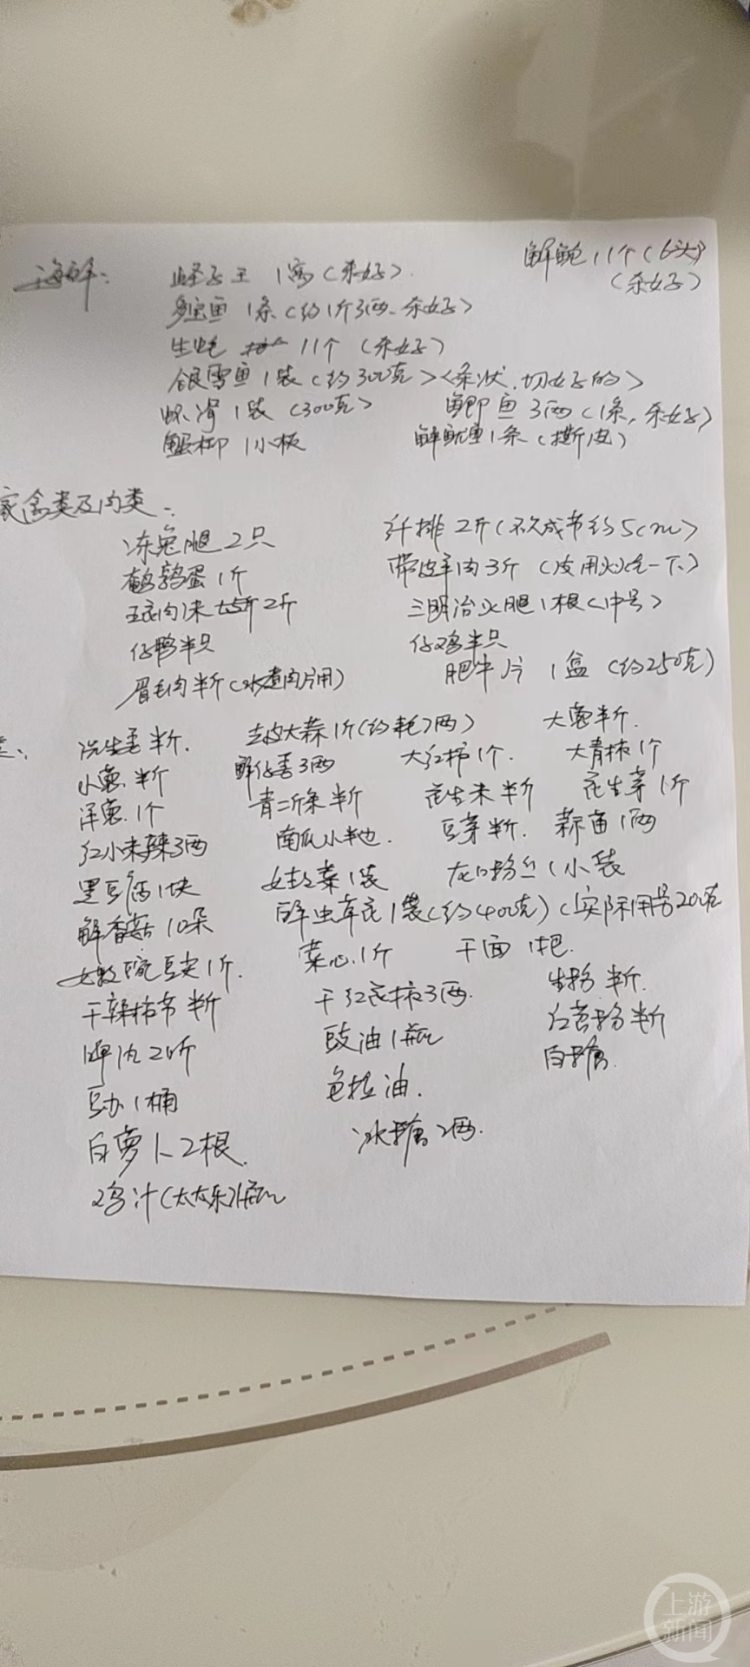 海鲜: 蛏子王 1斤(杀好) 鲜鲍 11个(6头)
(杀好)
多宝鱼 1条(约1斤3两、杀好)
生蚝 11个 (杀好)
银雪鱼 1袋(约300克)(条状、切好的)
虾滑 1袋(300克) 鲫鱼 3两(1条,杀好)
蟹柳 1小板 鲜鱿鱼1条(撕皮)
家禽类及肉类:
冻兔腿 2只 纤排 2斤(砍成节约5cm)
鹌鹑蛋 1斤 带皮羊肉3斤 (皮用火烧一下)
五花肉 2斤 三明治火腿1根(中号)
仔鸭半只 仔鸡半只
眉毛肉半斤(水煮肉片用) 肥牛片 1盒 (约250克)
洗生姜 半斤. 去皮大蒜1斤(约耗7两) 大葱半斤.
小葱 半斤 鲜仔姜3两 大红椒1个. 大青椒1个
洋葱 1个 青二荆条 半斤 花生米 半斤 花生芽 1斤
红小米辣3两 南瓜小半 豆芽半斤. 蒜苗1两
黑豆腐1块 娃娃菜1袋 龙口粉丝1小袋
鲜香菇 10朵 鲜虫草花1袋(约400克)(实际用量200克
嫩豌豆尖1斤. 菜心1斤 干面 1把.
干辣椒节 半斤 干红花椒3两. 生粉 半斤.
啤酒 2听 豉油1瓶 红苕粉半斤
豆办1桶 色拉油. 白糖
白萝卜2根. 冰糖2两.
鸡汁(太太乐)1瓶
上游
新闻